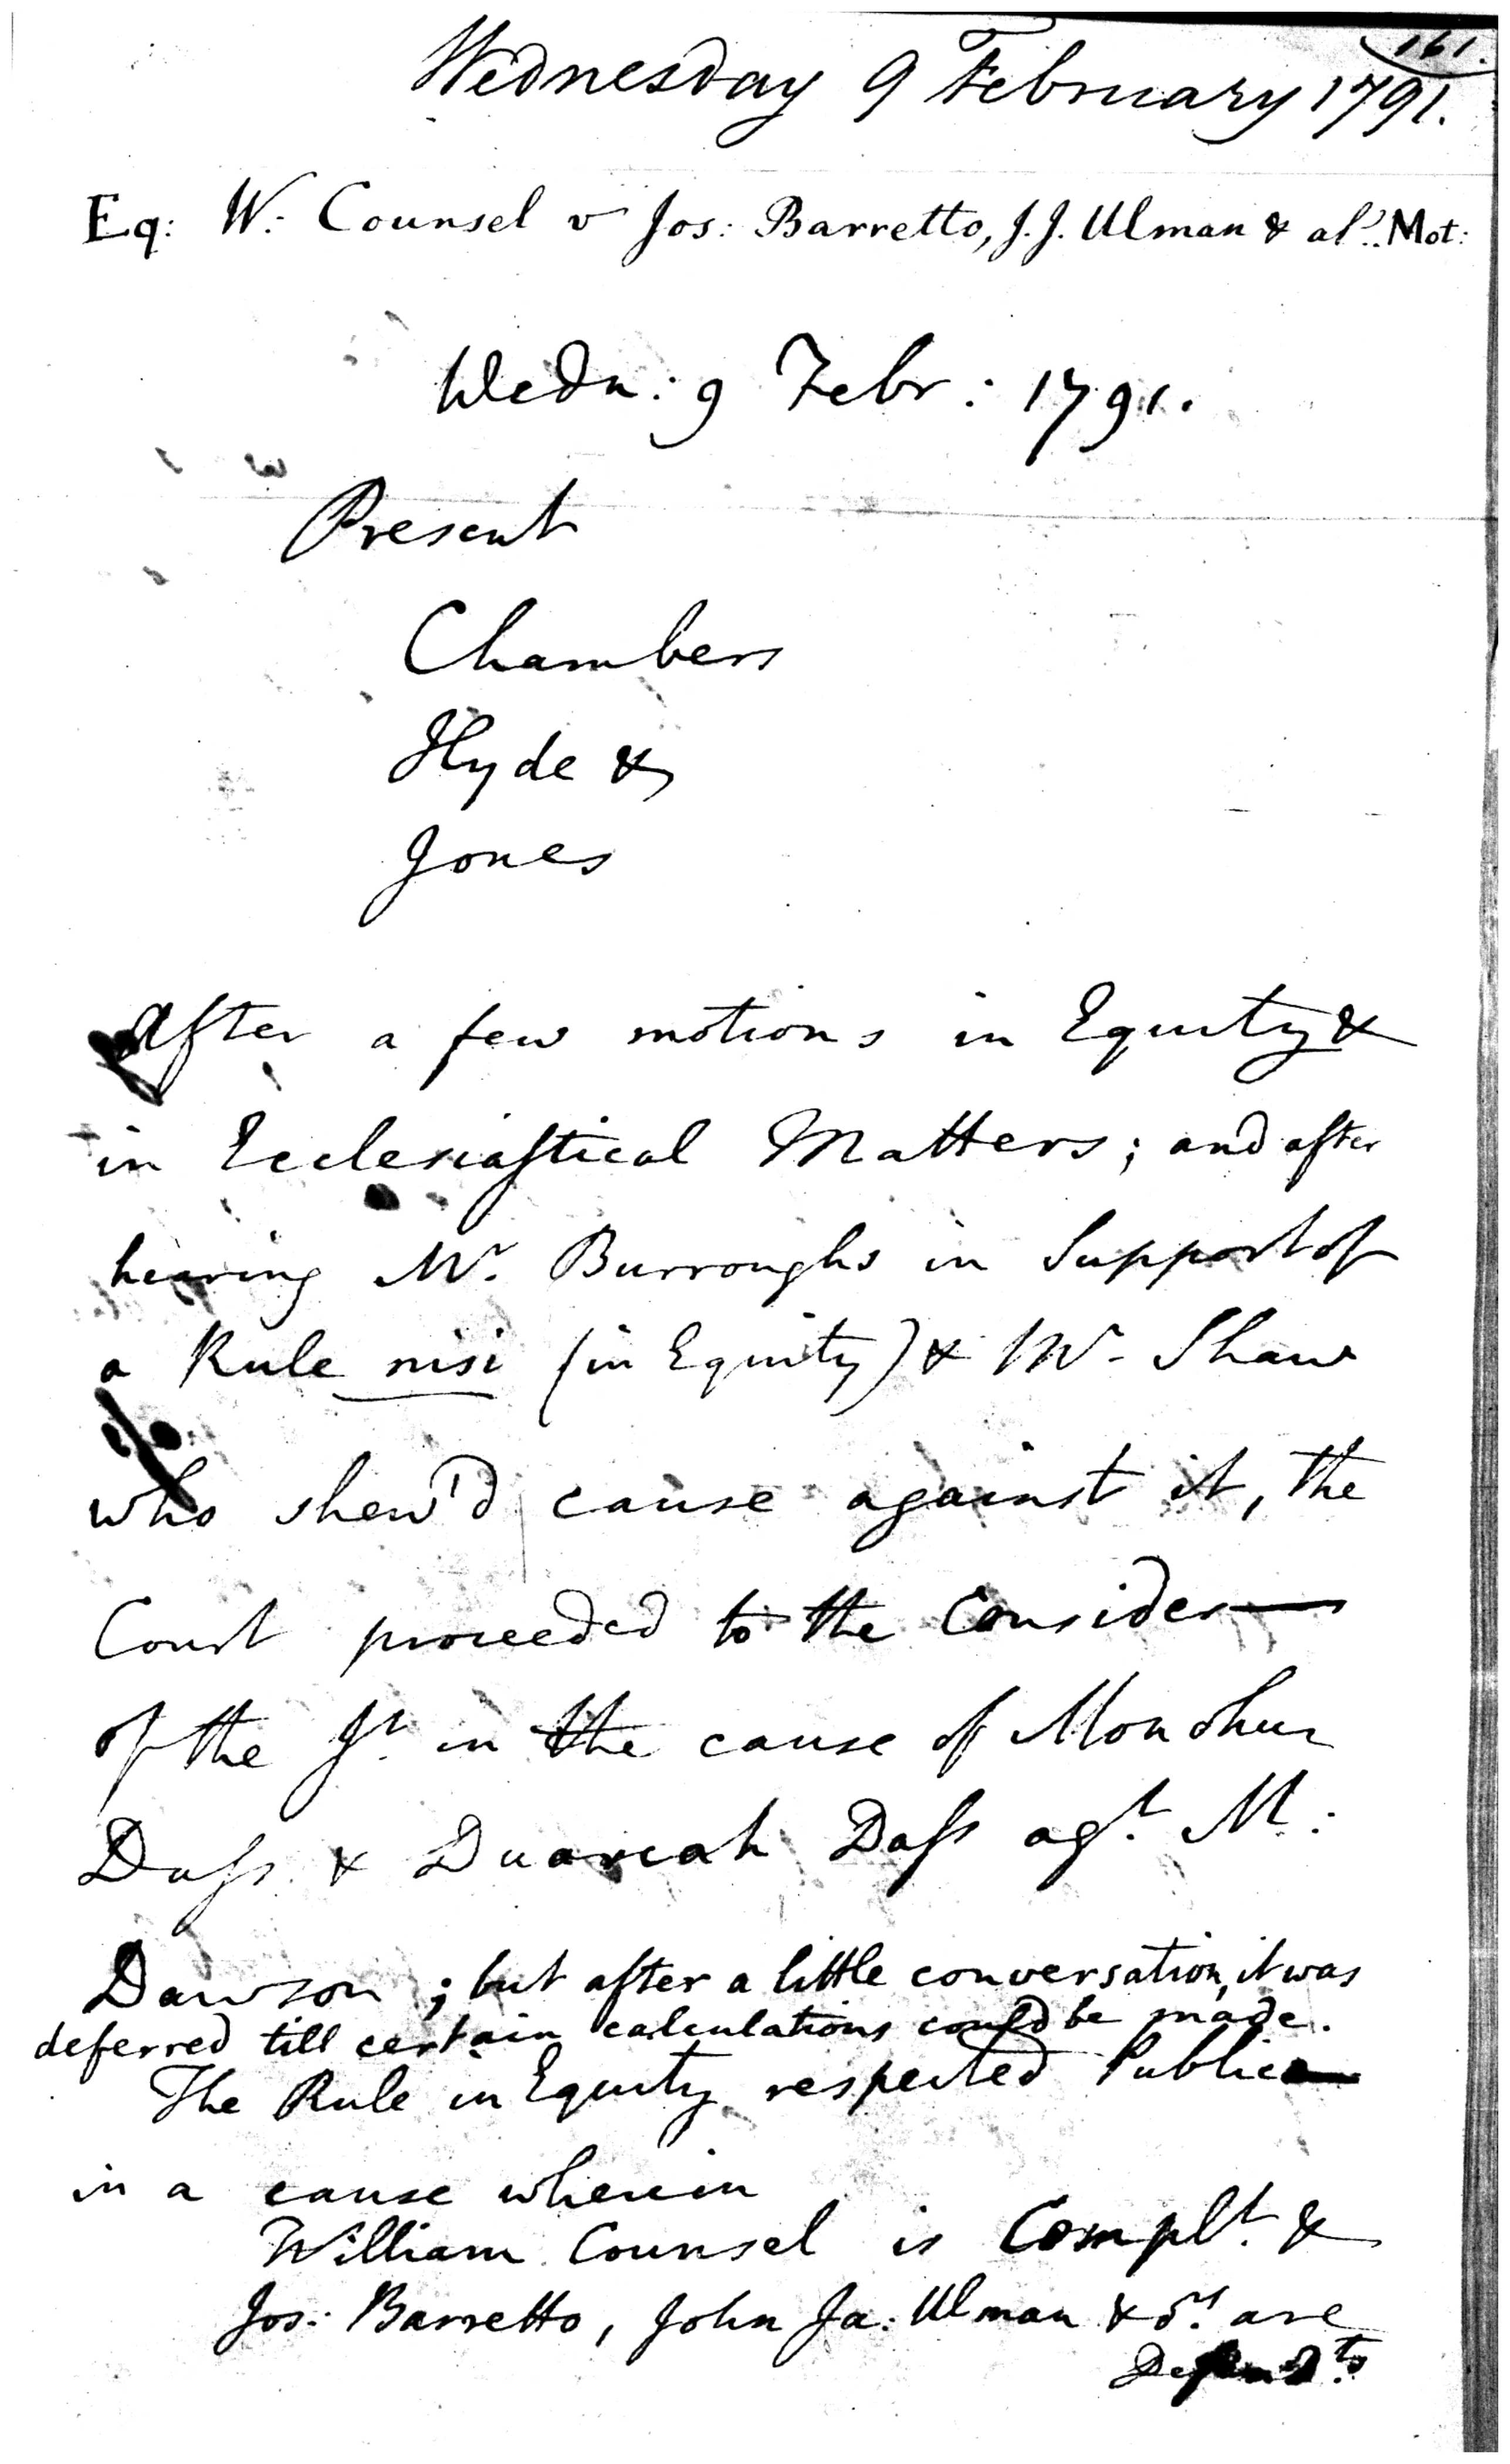 161.
Wednesday 9 February 1791.
Eq: W: Counsel v Jos: Barretto, J.J. Ulman & als. Mot:
Wedn: 9 Febr: 1791.
Present
Chambers
Hyde &
Jones
After a few motions in Equity &
in Ecclesiastical Matters; and after
hearing Mr. Burroughs in Support of
a Rule nisi (in Equity) & Mr. Shaw
who shew'd cause against it, the
Court proceeded to the Consider—
of the Jt. in the cause of Monohur
Dass & Duarcah Dass agt. M:
Dawson; but after a little conversation, it was
deferred till certain calculations could be made.
The Rule in Equity respected Public—
in a cause wherein
William Counsel is Complt. &
Jos: Barretto, John Ja: Ulman & ors. are
Defendts.